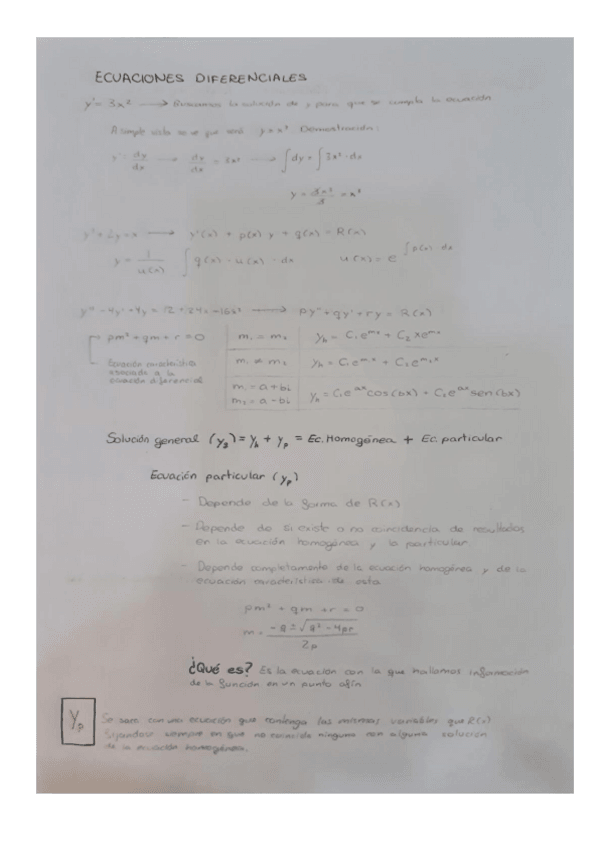 ECUACIONES DIFERENCIALES
y' = 3x² → Buscamos la solución de y para que se cumpla la ecuación
A simple vista se ve que será y = x³ Demostración:
y' = dy/dx → dy/dx = 3x² → ∫dy = ∫3x²·dx
y = 3x³/3 = x³
y' + 2y = x → y'(x) + p(x) y + q(x) = R(x)
y = 1/u(x) ∫ q(x)·u(x)·dx u(x) = e^∫p(x) dx
y'' - 4y' + 4y = 12 + 24x - 16x² → py'' + qy' + ry = R(x)
pm² + qm + r = 0
Ecuación característica
asociada a la
ecuación diferencial
m₁ = m₂ yₕ = C₁e^mx + C₂xe^mx
m₁ ≠ m₂ yₕ = C₁e^m₁x + C₂e^m₂x
m₁ = a + bi
m₂ = a - bi
yₕ = C₁e^ax cos(bx) + C₂e^ax sen(bx)
Solución general (yg) = yₕ + yₚ = Ec. Homogénea + Ec. particular
Ecuación particular (yₚ)
- Depende de la forma de R(x)
- Depende de si existe o no coincidencia de resultados
en la ecuación homogénea y la particular
- Depende completamente de la ecuación homogénea y de la
ecuación característica de esta
pm² + qm + r = 0
m = -q ± √q² - 4pr / 2p
¿Qué es? Es la ecuación con la que hallamos información
de la función en un punto afín
Yₚ
Se saca con una ecuación que contenga las mismas variables que R(x)
fijándose siempre en que no coincida ninguna con alguna solución
de la ecuación homogénea.